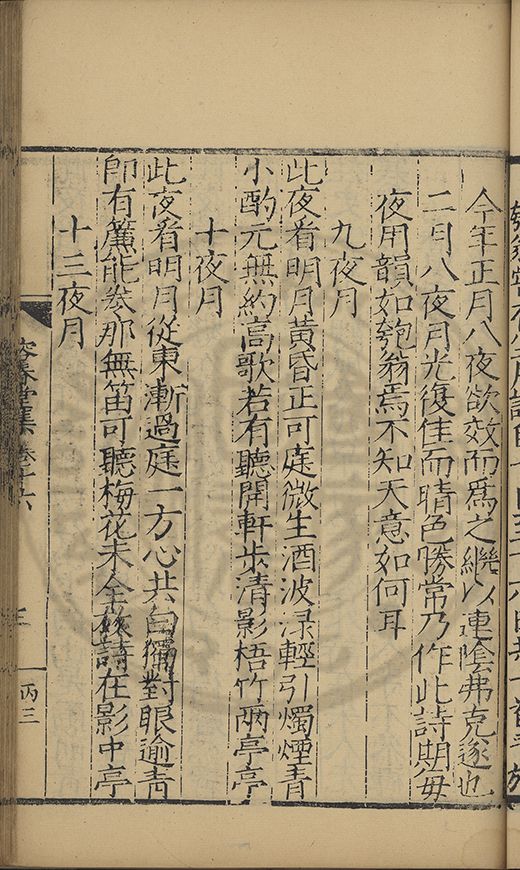 今年正月八夜欲效而爲之繼以連陰弗克遂也
二月八夜月光復佳而晴色勝常乃作此詩期毎
夜用韻如匏翁焉不知天意如何耳
九夜月
此夜看明月黃昏正可庭微生酒波淥輕引燭煙青
小酌元無約高歌若有聽開軒步清影梧竹兩亭亭
十夜月
此夜看明月從東漸過庭一方心共白獨對眼逾青
卽有簾能卷那無笛可聽梅花未全落詩在影中亭
十三夜月
容春堂集 卷十六
三
丙三